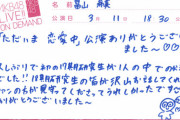 AKB48
LIVE!!
ON DEMAND
名前 畠山 希美
日付 3・11・18:30
「ただいま 恋愛中」公演ありがとうござい
ました〜♡♡
久しぶりであり17期研究生が1人の中での公演
でした!!18期研究生の皆が沢山お話してくれたり、
ファンの方が見守ってくださってうれしかったです!
ありがとうございました〜